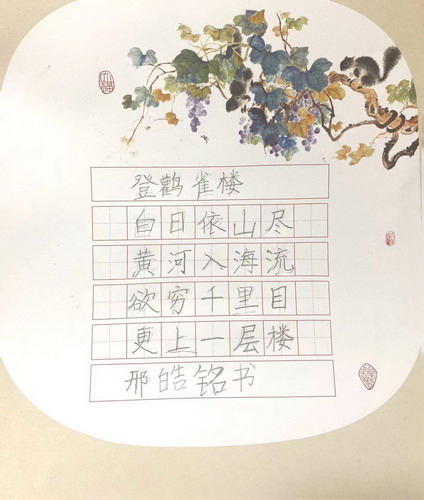 登鹳雀楼
自日依山尽
黄河入海流
欲穷千里目
更上一层楼
邢皓铭书